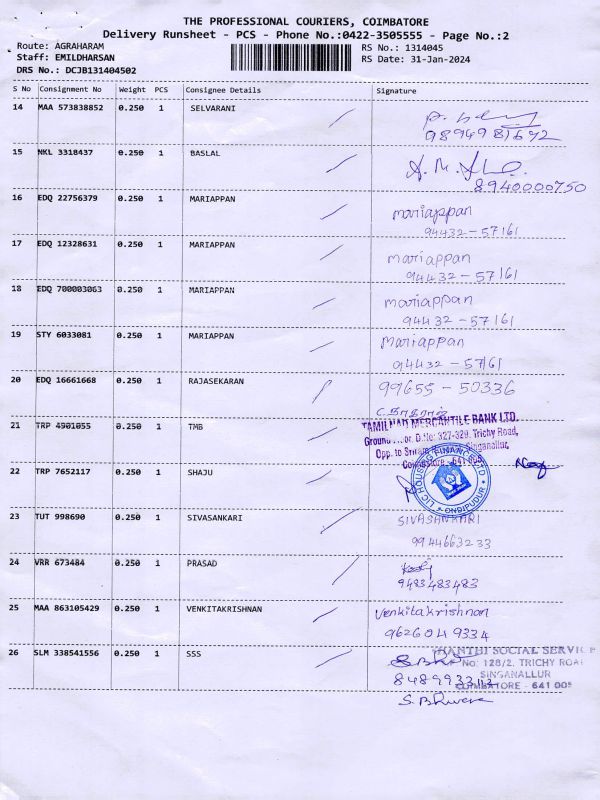 THE PROFESSIONAL COURIERS, COIMBATORE
Delivery Runsheet - PCS - Phone No.:0422-3505555 - Page No.:2
Route: AGRAHARAM
RS No.: 1314045
Staff: EMILDHARSAN
RS Date: 31-Jan-2024
DRS No.: DCJB131404502
S No Consignment No Weight PCS Consignee Details Signature
14 MAA 573838852 0.250 1 SELVARANI
9894981692
15 NKL 3318437 0.250 1 BASLAL
8940000750
16 EDQ 22756379 0.250 1 MARIAPPAN
mariappan
94432-57161
17 EDQ 12328631 0.250 1 MARIAPPAN
mariappan
94432-57161
18 EDQ 700003063 0.250 1 MARIAPPAN
mariappan
94432-57161
19 STY 6033081 0.250 1 MARIAPPAN
Mariappan
94432-57161
20 EDQ 16661668 0.250 1 RAJASEKARAN
99655-50336
21 TRP 4901055 0.250 1 TMB
TAMILNAD MERCANTILE BANK LTD.
Ground Floor, D.No: 327-329, Trichy Road,
Opp. to Singanallur,
Coimbatore - 641 005
22 TRP 7652117 0.250 1 SHAJU
LIC HOUSING FINANCE LTD
ONDIPUDUR
23 TUT 998690 0.250 1 SIVASANKARI
SIVASANKARI
9944663233
24 VRR 673484 0.250 1 PRASAD
9483483483
25 MAA 863105429 0.250 1 VENKITAKRISHNAN
Venkitakrishnan
9626049334
26 SLM 338541556 0.250 1 SSS
SHANTHI SOCIAL SERVICE
No: 128/2, TRICHY ROAD
SINGANALLUR
COIMBATORE - 641 005